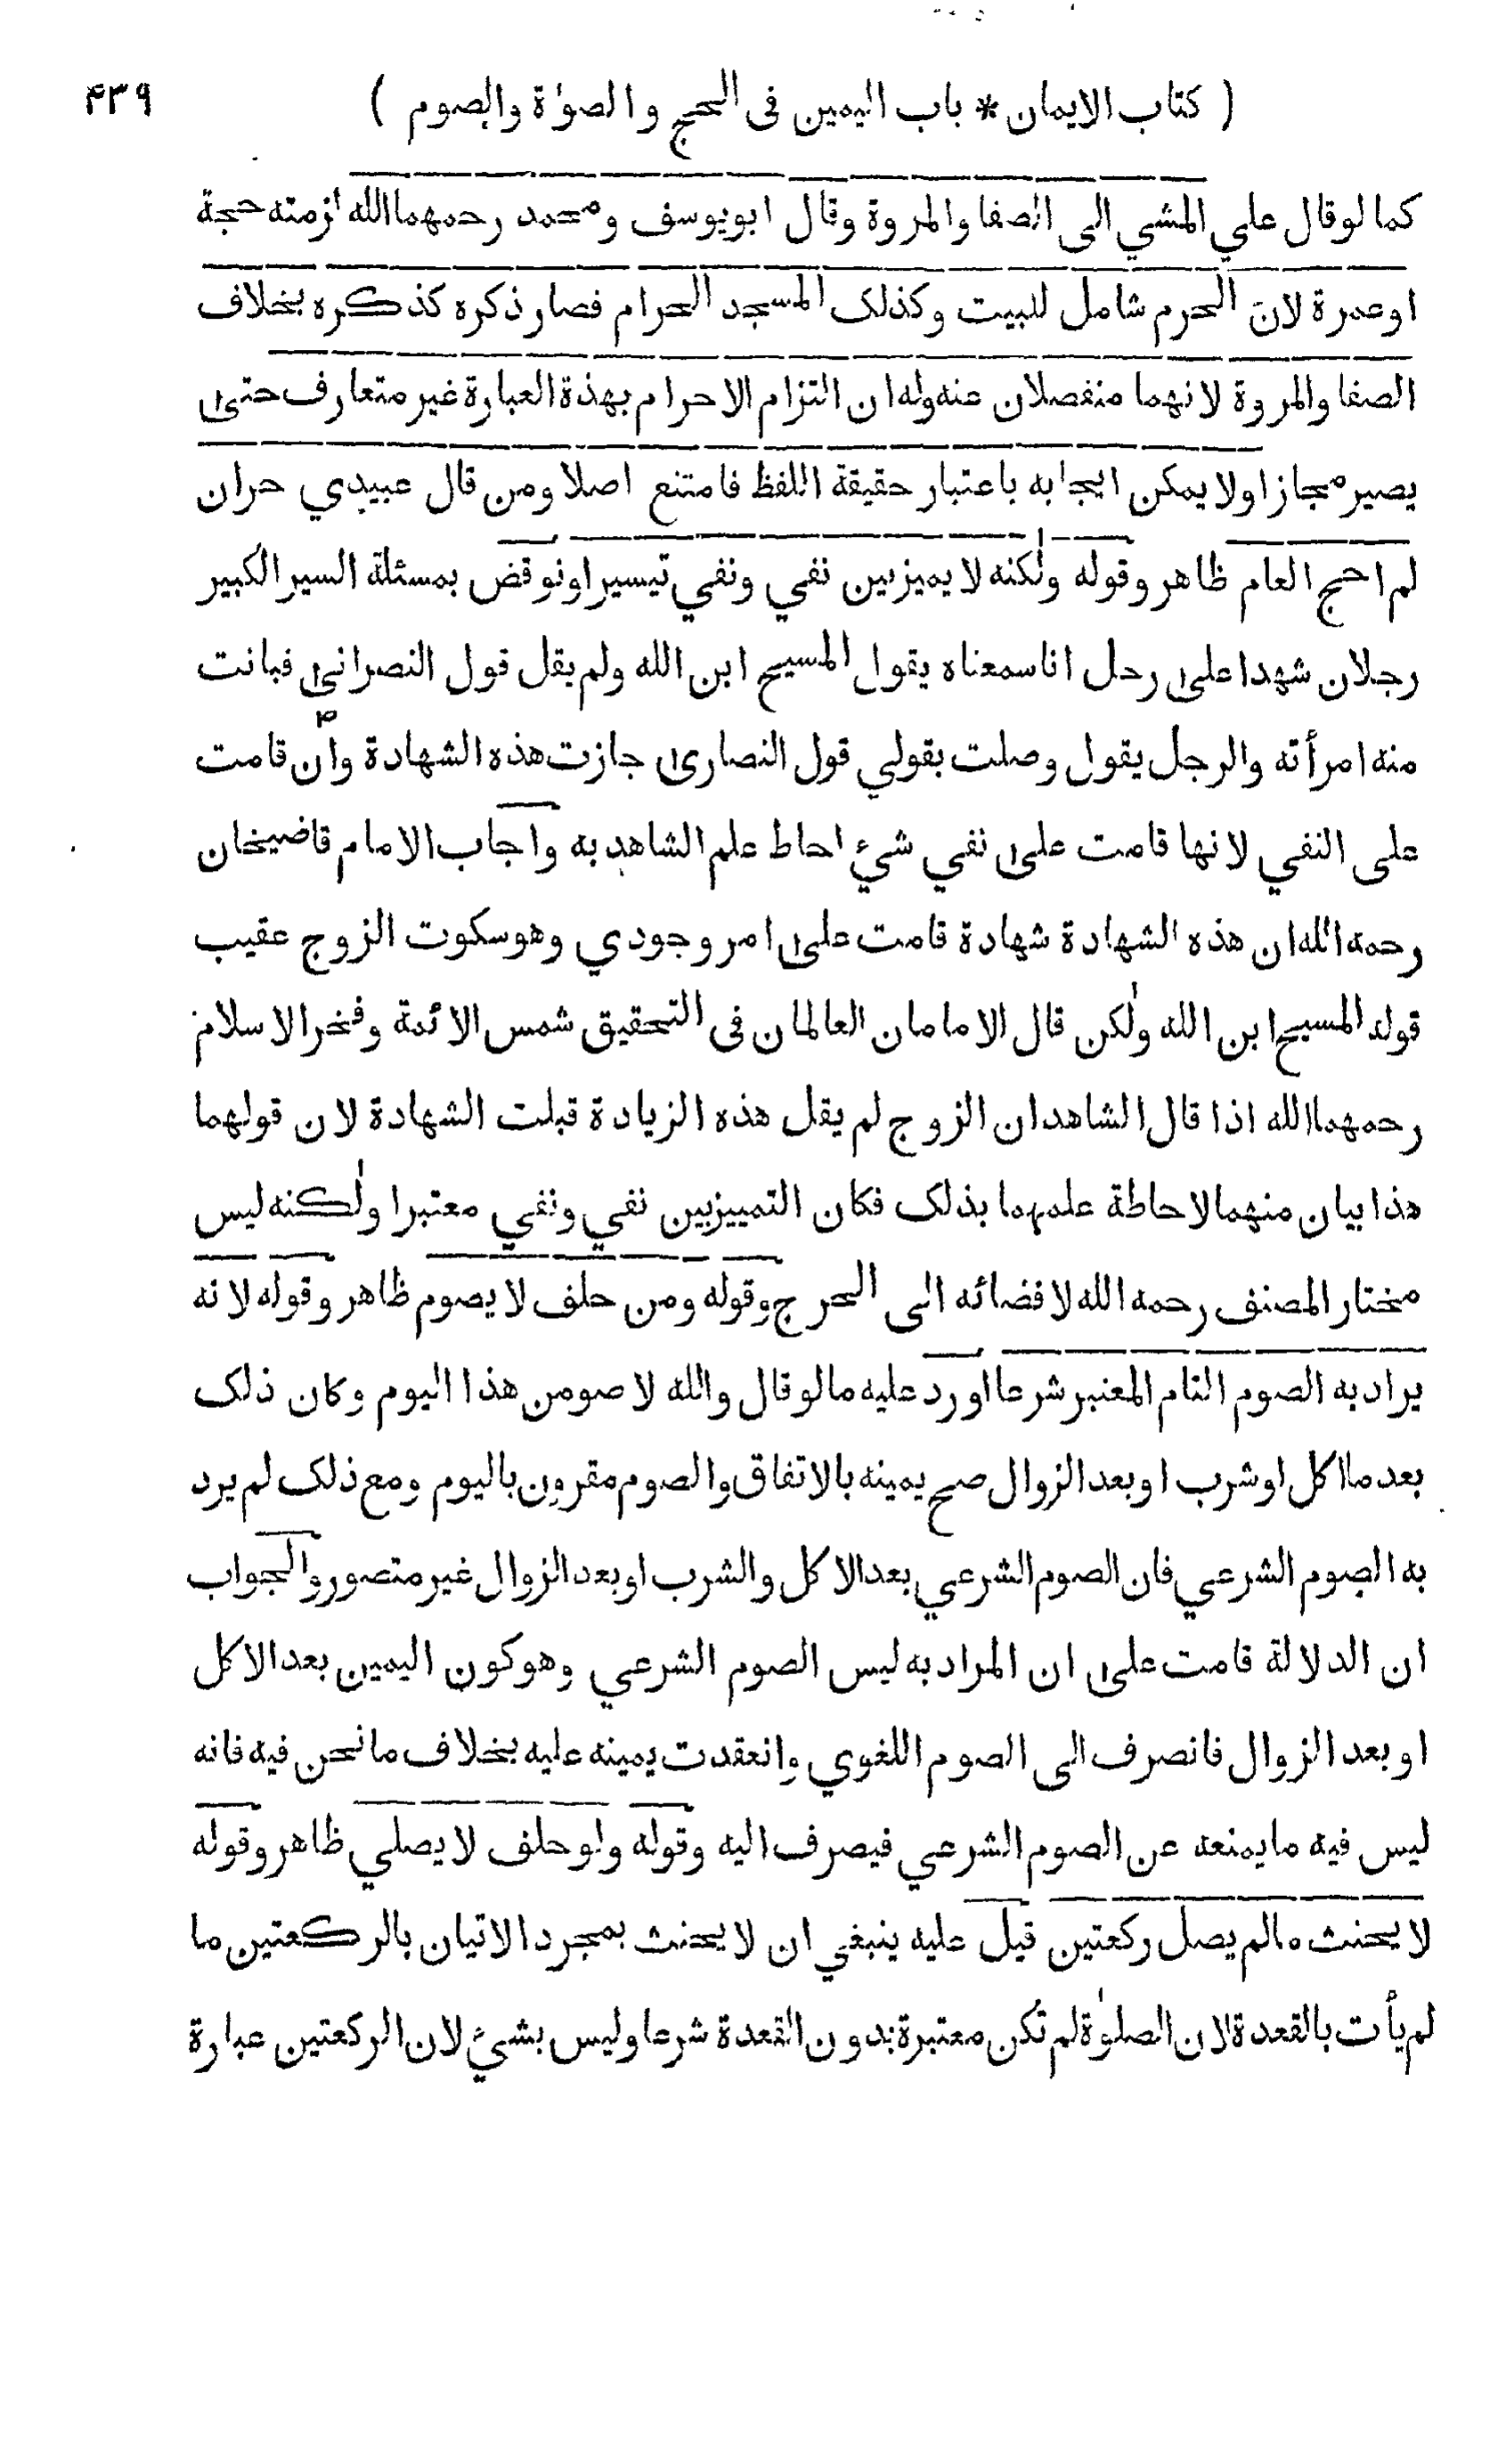 ( كتاب الايمان * باب اليمين فى الحج والصلوٰة والصوم ) ۴۳۹
كما لو قال علي المشي الى الصفا والمروة وقال ابويوسف ومحمد رحمهما الله لزمته حجة
او عمرة لان الحرم شامل للبيت وكذلك المسجد الحرام فصار ذكره كذكره بخلاف
الصفا والمروة لانهما منفصلان عنه وله ان التزام الاحرام بهذة العبارة غير متعارف حتى
يصير مجازا ولا يمكن ايجابه باعتبار حقيقة اللفظ فامتنع اصلا ومن قال عبيدي حران
لم احج العام ظاهر وقوله ولٰكنه لا يميز بين نفي ونفي تيسيرا ونوقض بمسئلة السير الكبير
رجلان شهدا على رجل انا سمعناه يقول المسيح ابن الله ولم يقل قول النصرانى فبانت
منه امرأته والرجل يقول وصلت بقولي قول النصارى جازت هذه الشهادة وان قامت
على النفي لانها قامت على نفي شيء احاط علم الشاهد به واجاب الامام قاضيخان
رحمه الله ان هذه الشهادة شهادة قامت على امر وجودي وهو سكوت الزوج عقيب
قوله المسيح ابن الله ولٰكن قال الامامان العالمان فى التحقيق شمس الائمة وفخر الاسلام
رحمهما الله اذا قال الشاهدان الزوج لم يقل هذه الزيادة قبلت الشهادة لان قولهما
هذا بيان منهما لاحاطة علمهما بذلك فكان التمييز بين نفي ونفي معتبرا ولٰكنه ليس
مختار المصنف رحمه الله لافضائه الى الحرج وقوله ومن حلف لا يصوم ظاهر وقوله لانه
يراد به الصوم التام المعتبر شرعا اورد عليه ما لو قال والله لاصومن هذا اليوم وكان ذلك
بعد ما اكل او شرب او بعد الزوال صح يمينه بالاتفاق والصوم مقرون باليوم ومع ذلك لم يرد
به الصوم الشرعي فان الصوم الشرعي بعد الاكل والشرب او بعد الزوال غير متصور والجواب
ان الدلالة قامت على ان المراد به ليس الصوم الشرعي وهو كون اليمين بعد الاكل
او بعد الزوال فانصرف الى الصوم اللغوي وانعقدت يمينه عليه بخلاف ما نحن فيه فانه
ليس فيه ما يمنعه عن الصوم الشرعي فيصرف اليه وقوله ولو حلف لا يصلي ظاهر وقوله
لا يحنث ما لم يصل ركعتين قيل عليه ينبغي ان لا يحنث بمجرد الاتيان بالركعتين ما
لم يأت بالقعدة لان الصلوٰة لم تكن معتبرة بدون القعدة شرعا وليس بشيء لان الركعتين عبارة